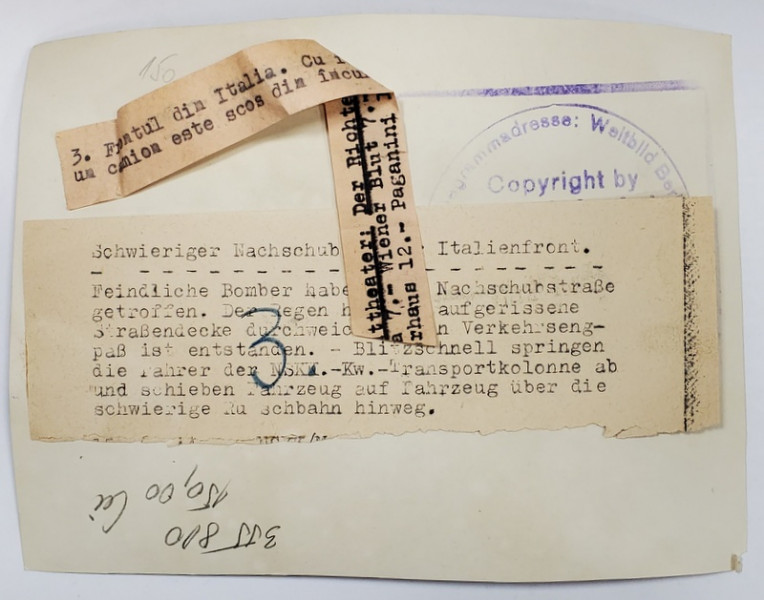 150
3. Frontul din Italia. Cu
um camion este scos dim îmcu
Der Richte
7.- Wiener Blut 7.
rhaus 12.- Paganini
mmadresse: Weltbild Be
Copyright by
Schwieriger Nachschub Italienfront.
Feindliche Bomber habe Nachschubstraße
getroffen. Der Regen h aufgerissene
Straßendecke durchweic n Verkehrseng-
paß ist entstanden. - Blitzschnell springen
die Fahrer der NSKK.-Kw.-Transportkolonne ab
und schieben Fahrzeug auf Fahrzeug über die
schwierige Ru schbahn hinweg.
3.
150,00 lei
355 810